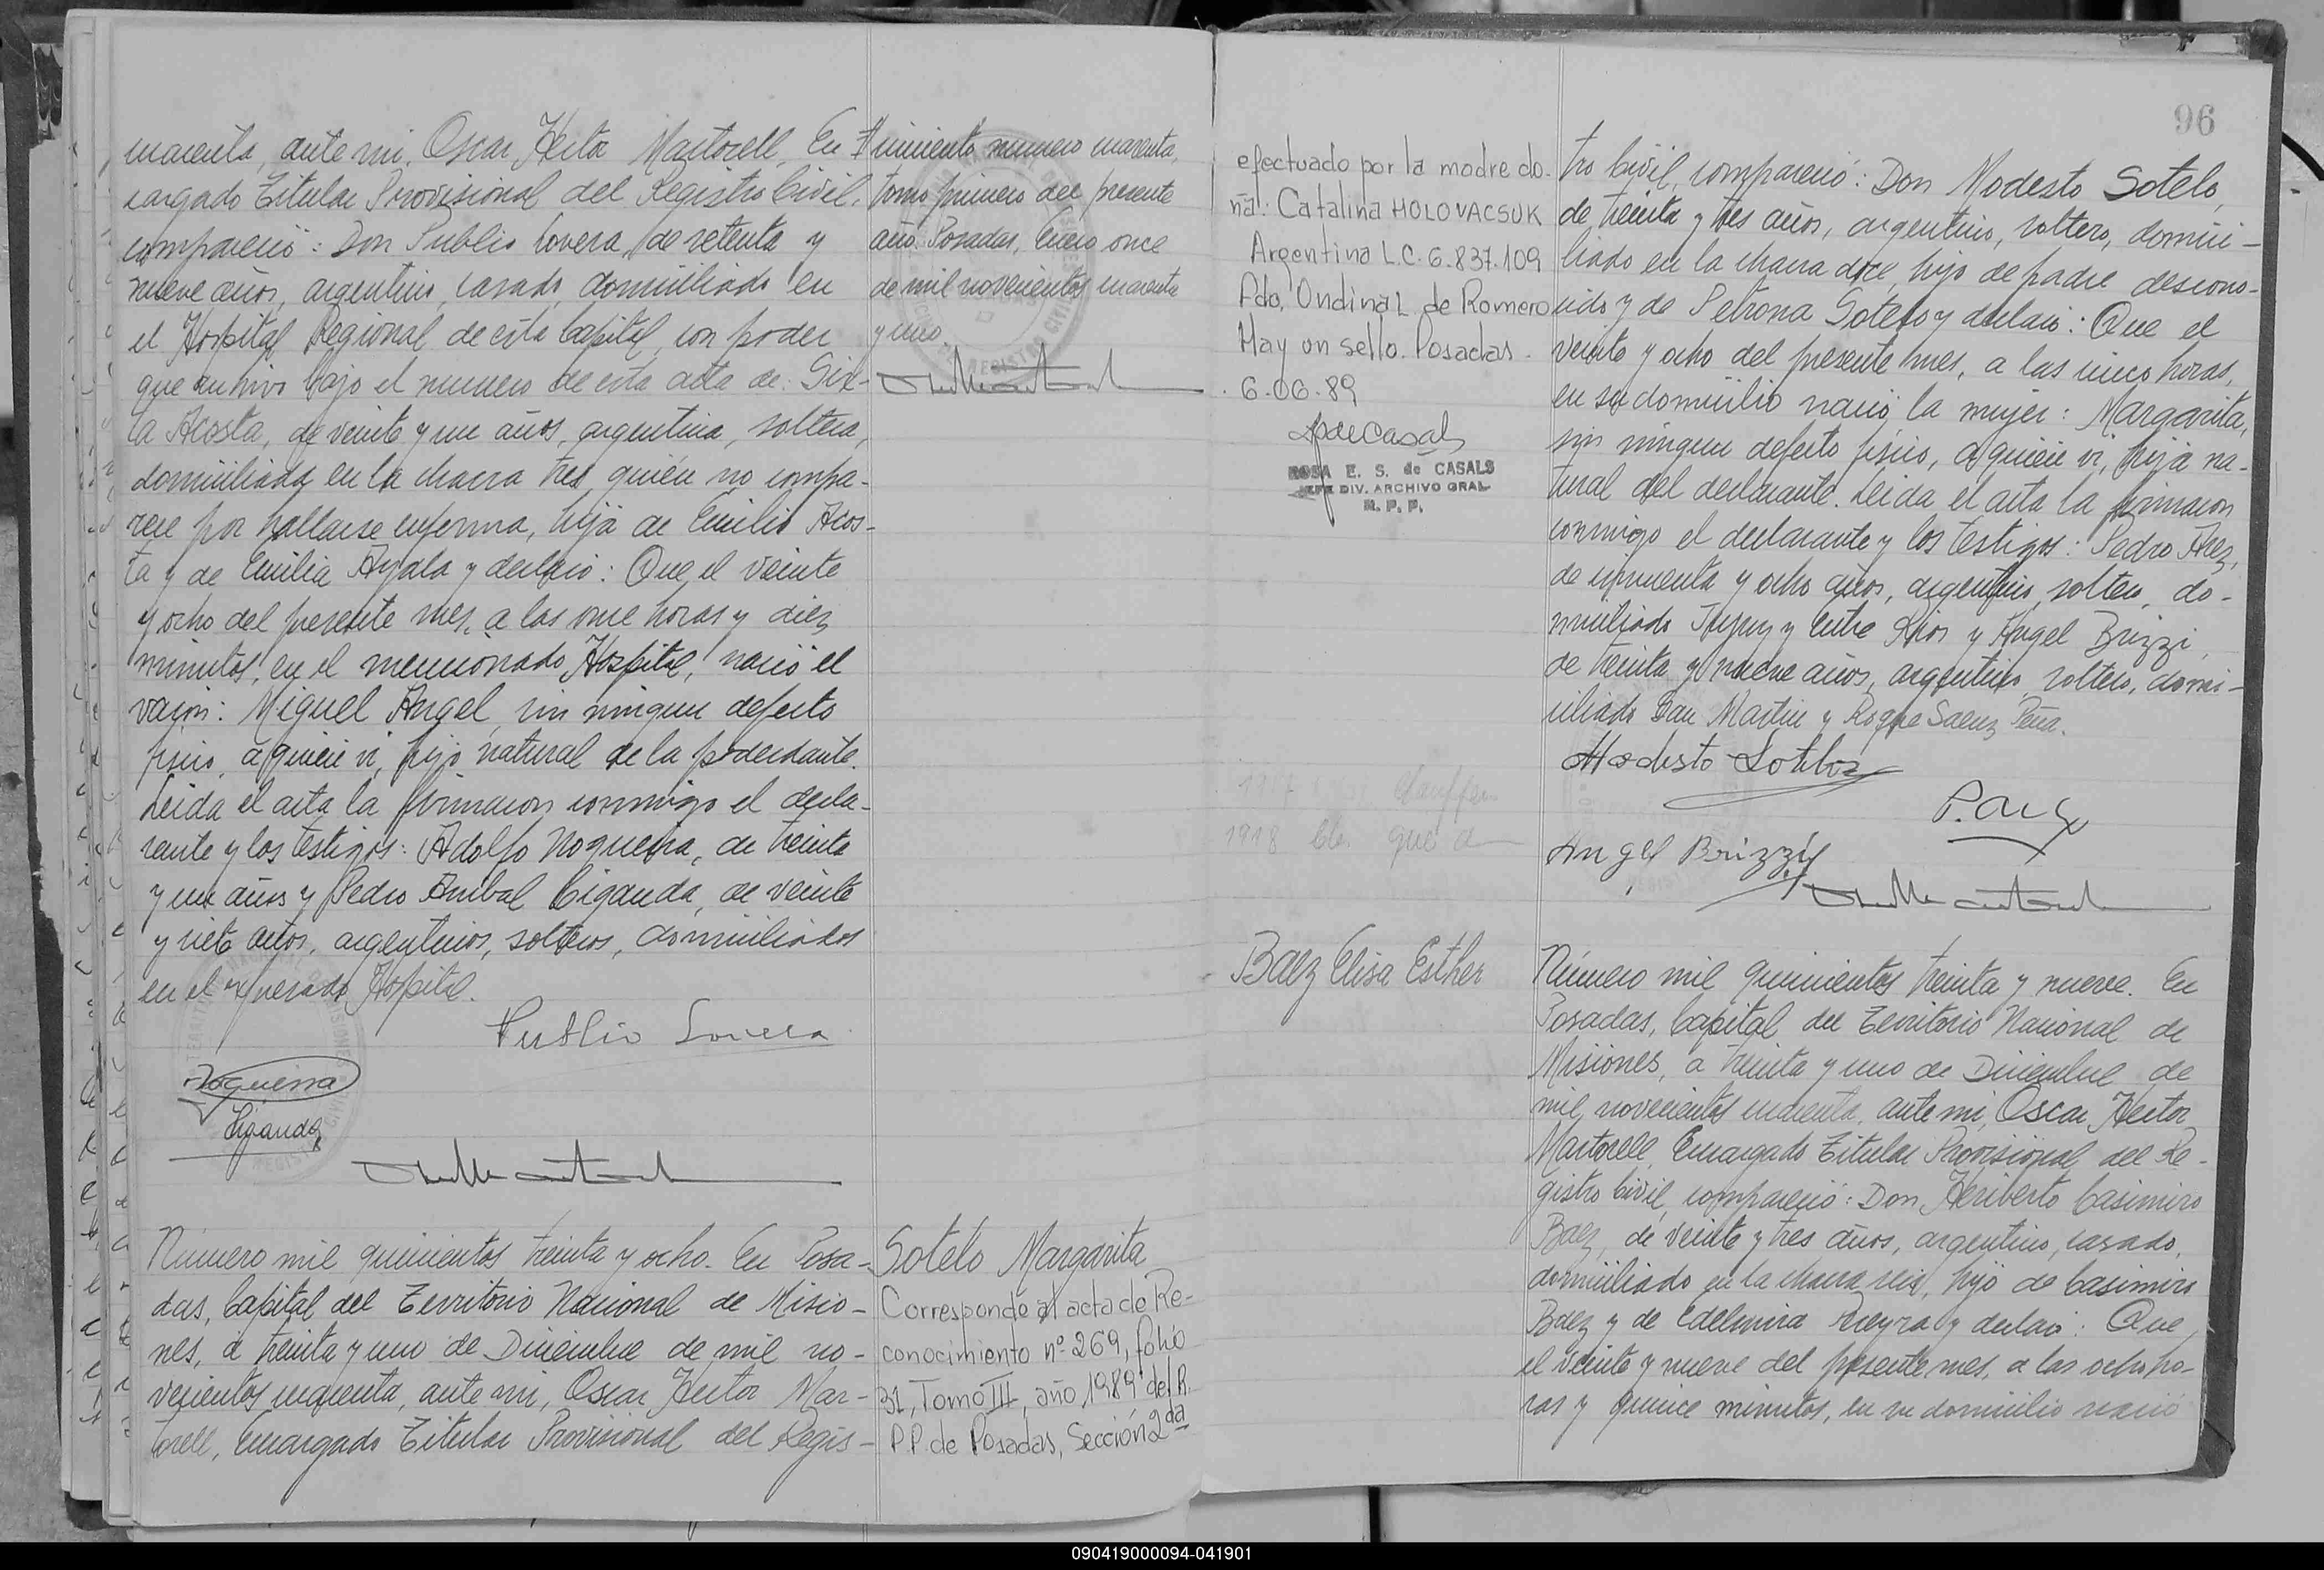 cuarenta, ante mi, Oscar Hector Martorell, En-
cargado Titular Provisional del Registro Civil,
compareció: Don Publio Lovera, de setenta y
nueve años, argentino, casado, domiciliado en
el Hospital Regional de esta Capital, con poder
que archivo bajo el numero de esta acta de: Six-
ta Acosta, de veinte y un años, argentina, soltera,
domiciliada en la chacra tres, quién no compa-
rece por hallarse enferma, hija de Emilio Acos-
ta y de Emilia Ayala y declaró: Que el veinte
y ocho del presente mes, a las once horas y diez
minutos, en el mencionado Hospital, nació el
varón: Miguel Angel, sin ningun defecto
fisico, a quien vi, hijo natural de la poderdante.
Leida el acta la firmaron conmigo el decla-
rante y los testigos: Adolfo Nogueira, de treinta
y un años y Pedro Anibal Ciganda, de veinte
y siete años, argentinos, solteros, domiciliados
en el expresado Hospital.
Publio Lovera
Nogueira
Ciganda
cimiento numero cuarenta,
tomo primero del presente
año. Posadas, Enero once
de mil novecientos cuarenta
y uno.
Número mil quinientos treinta y ocho. En Posa-
das, Capital del Territorio Nacional de Misio-
nes, a treinta y uno de Diciembre de mil no-
vecientos cuarenta, ante mi, Oscar Hector Mar-
torell, Encargado Titular Provisional del Regis-
Sotelo Margarita
Corresponde al acta de Re-
conocimiento nº 269, folio
31, Tomo III, año 1989 del R.
P.P. de Posadas, Sección 2da
96
efectuado por la madre do-
ña: Catalina HOLOVACSUK
Argentina L.C. 6.837.109
Fdo. Ondina L. de Romero
Hay un sello. Posadas.
6.06.89
ROSA E. S. de CASALS
JEFE DIV. ARCHIVO GRAL
R. P. P.
tro Civil, compareció: Don Modesto Sotelo,
de treinta y tres años, argentino, soltero, domici-
liado en la chacra doce, hijo de padre descono-
cido y de Petrona Sotelo y declaró: Que el
veinte y ocho del presente mes, a las cinco horas,
en su domicilio nació la mujer: Margarita,
sin ningun defecto fisico, a quien vi, hija na-
tural del declarante. Leida el acta la firmaron
conmigo el declarante y los testigos: Pedro
de cincuenta y ocho años, argentino, soltero, do-
miciliado Jujuy y Entre Rios y Angel Brizzi,
de treinta y nueve años, argentino, soltero, domi-
ciliado San Martin y Roque Saenz Peña.
Modesto Sotelo
Angel Brizzi
Baez Elisa Esther
Número mil quinientos treinta y nueve. En
Posadas, Capital del Territorio Nacional de
Misiones, a treinta y uno de Diciembre de
mil novecientos cuarenta, ante mi, Oscar Hector
Martorell, Encargado Titular Provisional del Re-
gistro Civil, compareció: Don Heriberto Casimiro
Baez, de veinte y tres años, argentino, casado,
domiciliado en la chacra seis, hijo de Casimiro
Baez y de Edelmira Rieyra y declaró: Que
el veinte y nueve del presente mes, a las ocho ho-
ras y quince minutos, en su domicilio nació
090419000094-041901